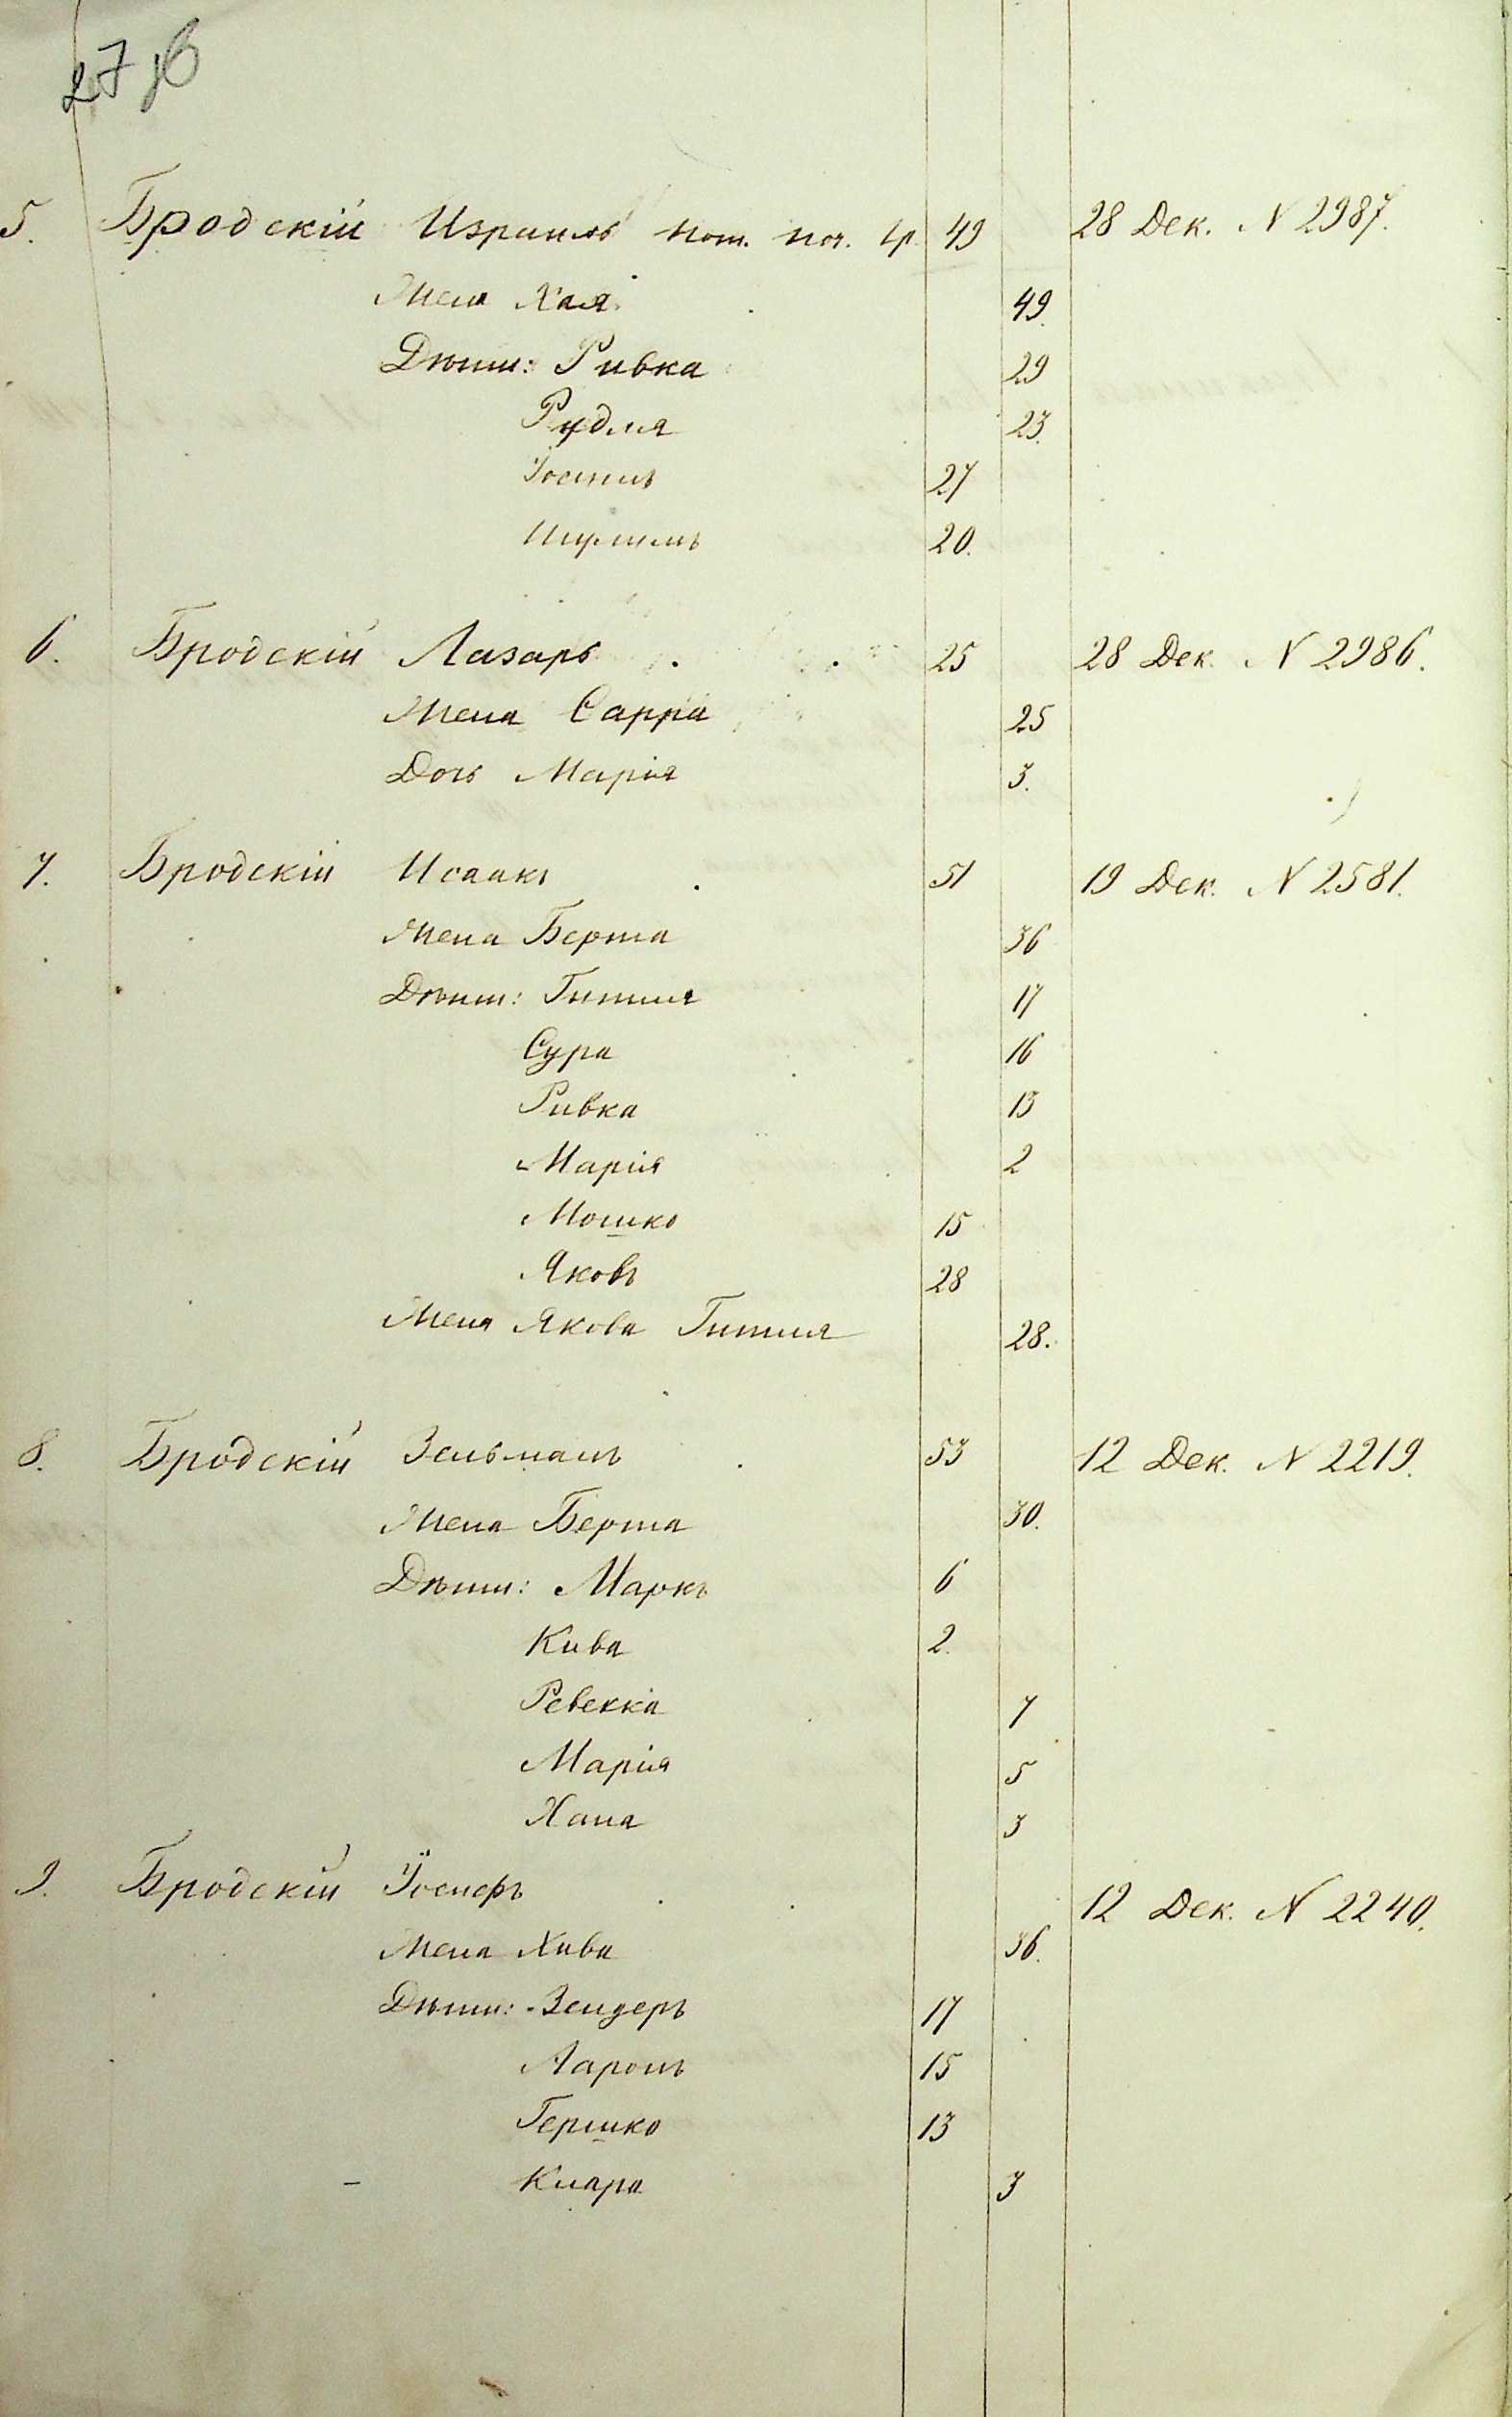 27 об
5. Бродскій Израиль пот. поч. гр. 49 28 Дек. N 2987.
Жена Хая 49.
Дѣти: Ривка 29
Рудля 23.
Іосиль 27
20.
6. Бродскій Лазарь 25 28 Дек. N 2986.
Жена Сарра 25
Дочь Марія 3.
7. Бродскій Исаакъ 51 19 Дек. N 2581.
Жена Берта 36
Дѣти: Гитля 17
Сура 16
Ривка 13
Марія 2
Мошко 15
Яковъ 28
Жена Якова Гитля 28.
8. Бродскій Зельманъ 53 12 Дек. N 2219.
Жена Берта 30.
Дѣти: Маркъ 6
Кива 2.
Ревекка 7
Марія 5
Хана 3
9. Бродскій Іосифъ 12 Дек. N 2240.
Жена Хава 36.
Дѣти: Зендеръ 17
Ааронъ 15
Гершко 13
Клара 3